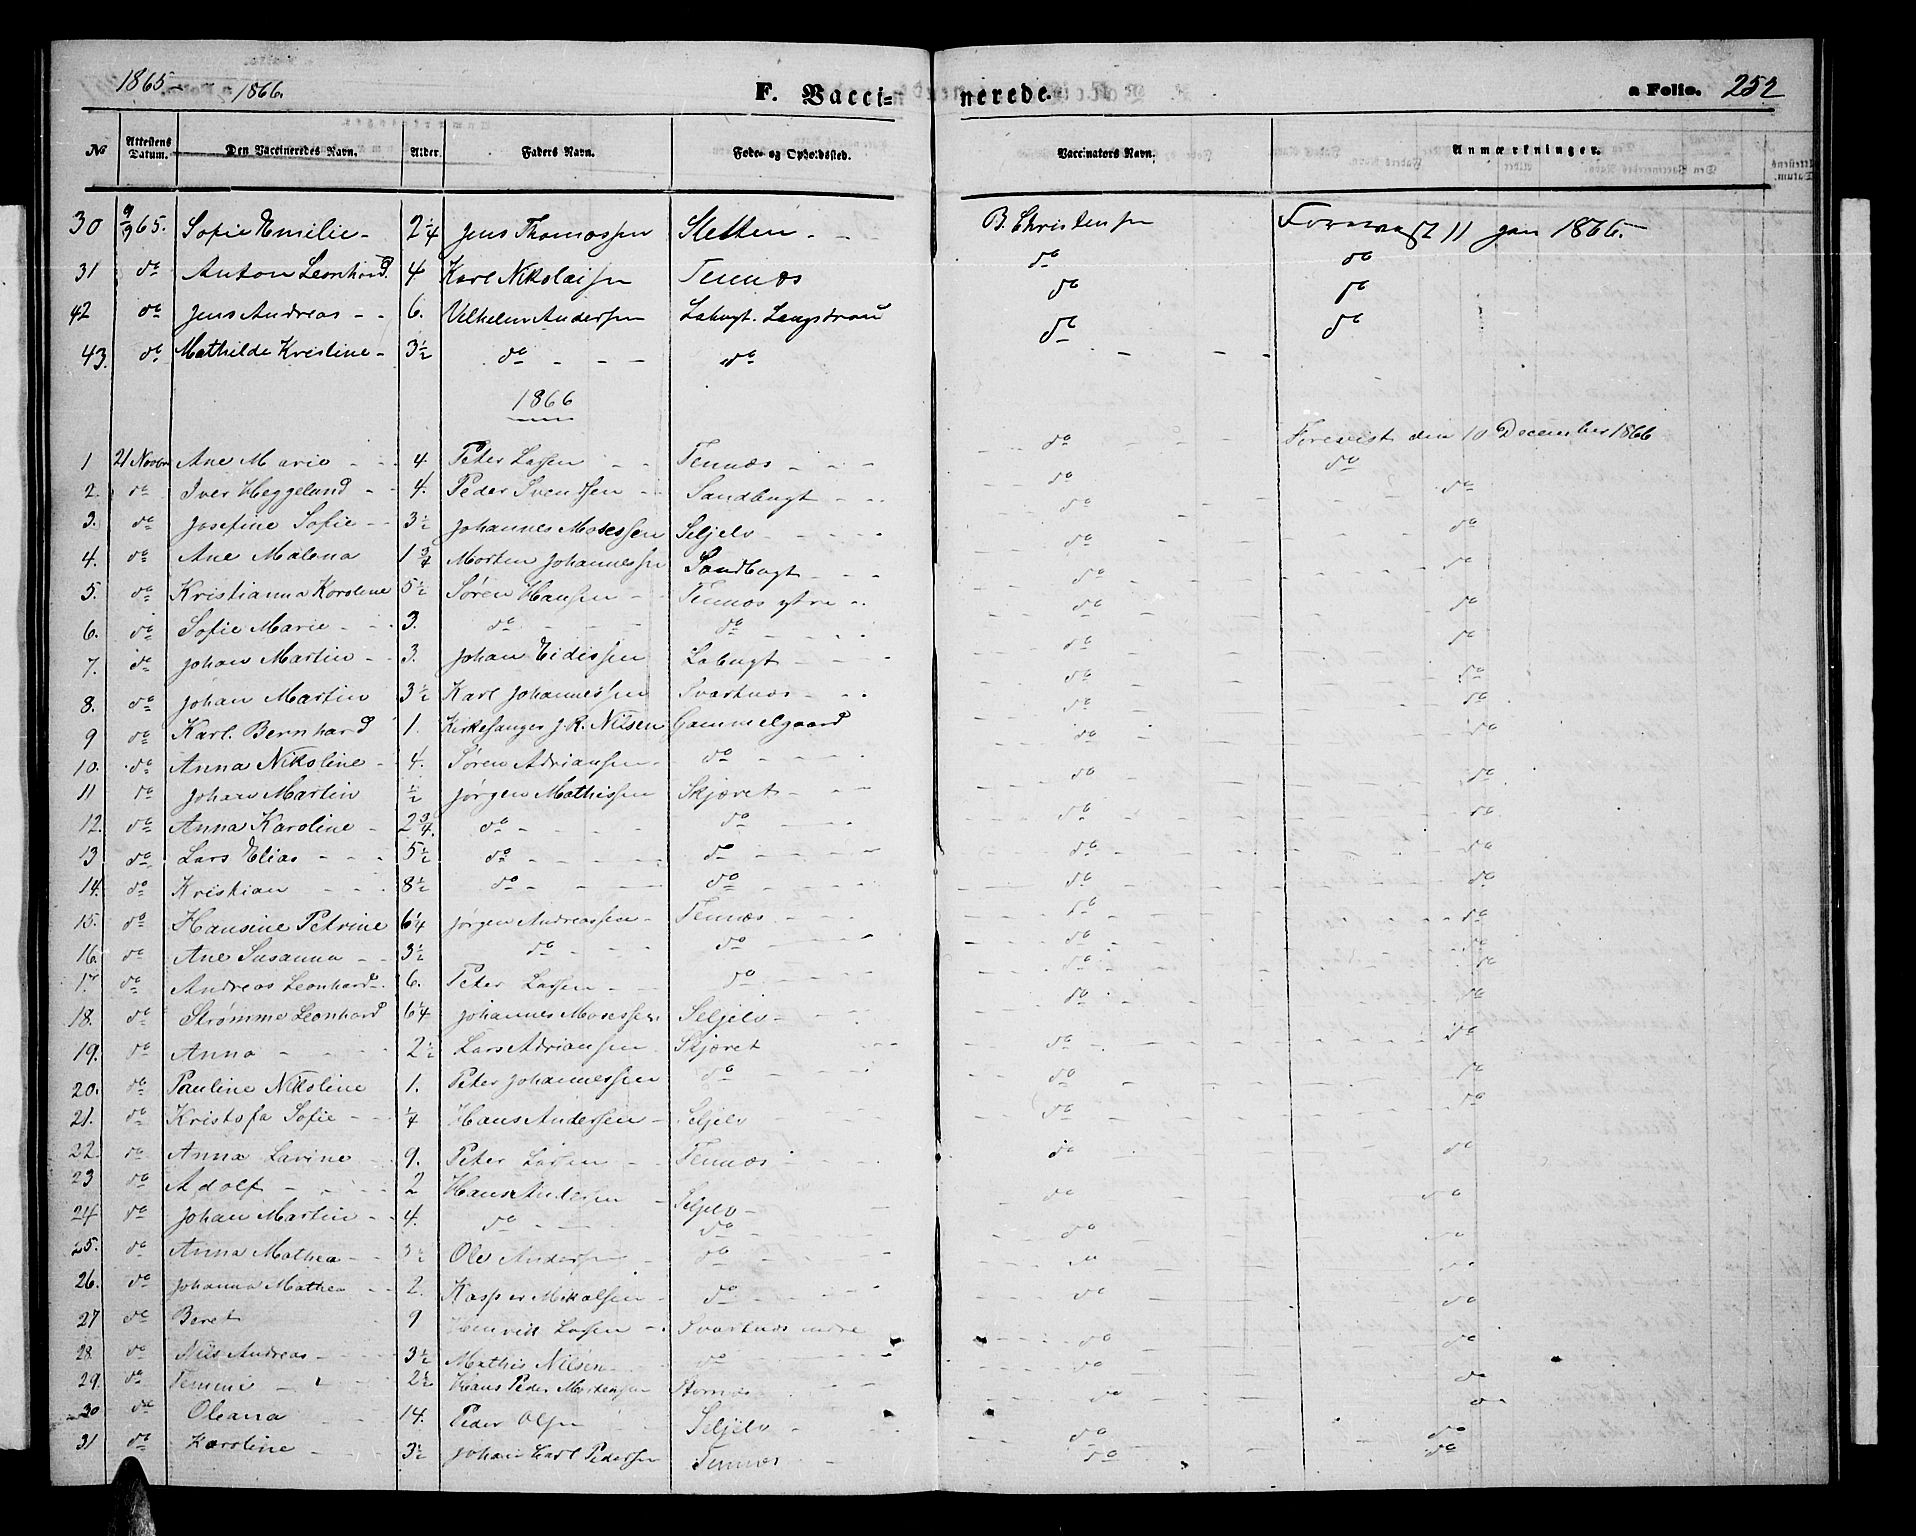 1865 - 1866.
F. Vaccinerede.
a Folio. 252
No Attestens Datum. Den Vaccineredes Navn. Alder. Faders Navn. Føde- og Opholdssted. Vaccinators Navn. Anmærkninger.
30 9/9 65. Sofie Emilie - 2 1/4 Jens Thomassen Sletten - - B. Christensen 11 Jan 1866.
31 do Anton Leonhard 4 Karl Nikolaisen Tennæs do do
42 do Jens Andreas - - 6. Vilhelm Andersen Labugt. do do
43. do Mathilde Kristine - 3 1/2 do - - - do do do
1866
1 21 Novbr Ane Marie - - 4 Peter Lassen - - Tennæs - - - do - - - Forevist den 10 December 1866
2. do Iver Heggelund - - 4. Peder Svendsen - - Sandbugt - - - do do
3. do Josefine Sofie - - 3 1/2 Johannes Mosessen Seljelv - - - - do do
4. do Ane Malena 1 3/4 Morten Johannessen Sandbugt - - - do do
5. do Kristianna Karoline 5 1/2 Søren Hansen - - Tennæs ytre - - do do
6. do Sofie Marie - - - 3. do - - - do - - - - do do
7. do Johan Martin - - 3. Johan Eidissen Labugt - - - - do do
8. do Johan Martin 3 1/2 Karl Johannessen Svartnæs - - - do do
9 do Karl Bernhard 1. Kirkesanger J. R. Nilsen Gammelgaard do do
10. do Anna Nikoline - 4. Søren Adriansen - do - - - - do do
11 do Johan Martin 1/2 Jørgen Mathissen Skjæret - - - do do
12. do Anna Karoline - 2 3/4. do - - - - do - - - - do do
13 do Lars Elias - - - 5 1/2 do - - - - do - - - - do do
14. do Kristian - - - 8 1/2 do - - - - do - - - - do do
15. do Hansine Petrine 6 1/4 Jørgen Andreassen - Tennæs - - - - do do
16. do Ane Susanna - - 3 1/2 do - - - do - - - - do do
17 do Andreas Leonhard - 6. Peter Lassen - - do - - - - do do
18. do Strømme Leonhard 6 1/4 Johannes Mosessen Seljelv - - - do do
19. do Anna - - - - 2 1/2 Lars Adriansen - Skjæret - - - do do
20. do Pauline Nikoline 1. Peter Johannessen do - - - - do do
21. do Kristofa Sofie - - Hans Andersen - Seljelv do do
22. do Anna Lavine - - 9. Peter Lassen - - Tennæs - - - - do do
23 do Adolf - - - - 2 Hans Andersen - Seljelv - do do
24 do Johan Martin - - 4. do - - - do do do
25. do Anna Mathea - - 3 1/2 Ole Andersen - do - - - - do do
26. do Johanna Mathea - - 2. Kasper Mikalsen - do - - - - do do
27 do Beret 9 Lassen - - Svartnæs indre do do
28. do Nils Andreas - - - 3 1/2 Mathis Nilsen - do - - - do do
29. do 2 1/2 Hans Peder Mortensen do do
30 do Oleana 14. Peder Olsen Seljelv - - do do
31 do Karoline 3 1/2 Johan Karl Pedersen Tennæs - - do do